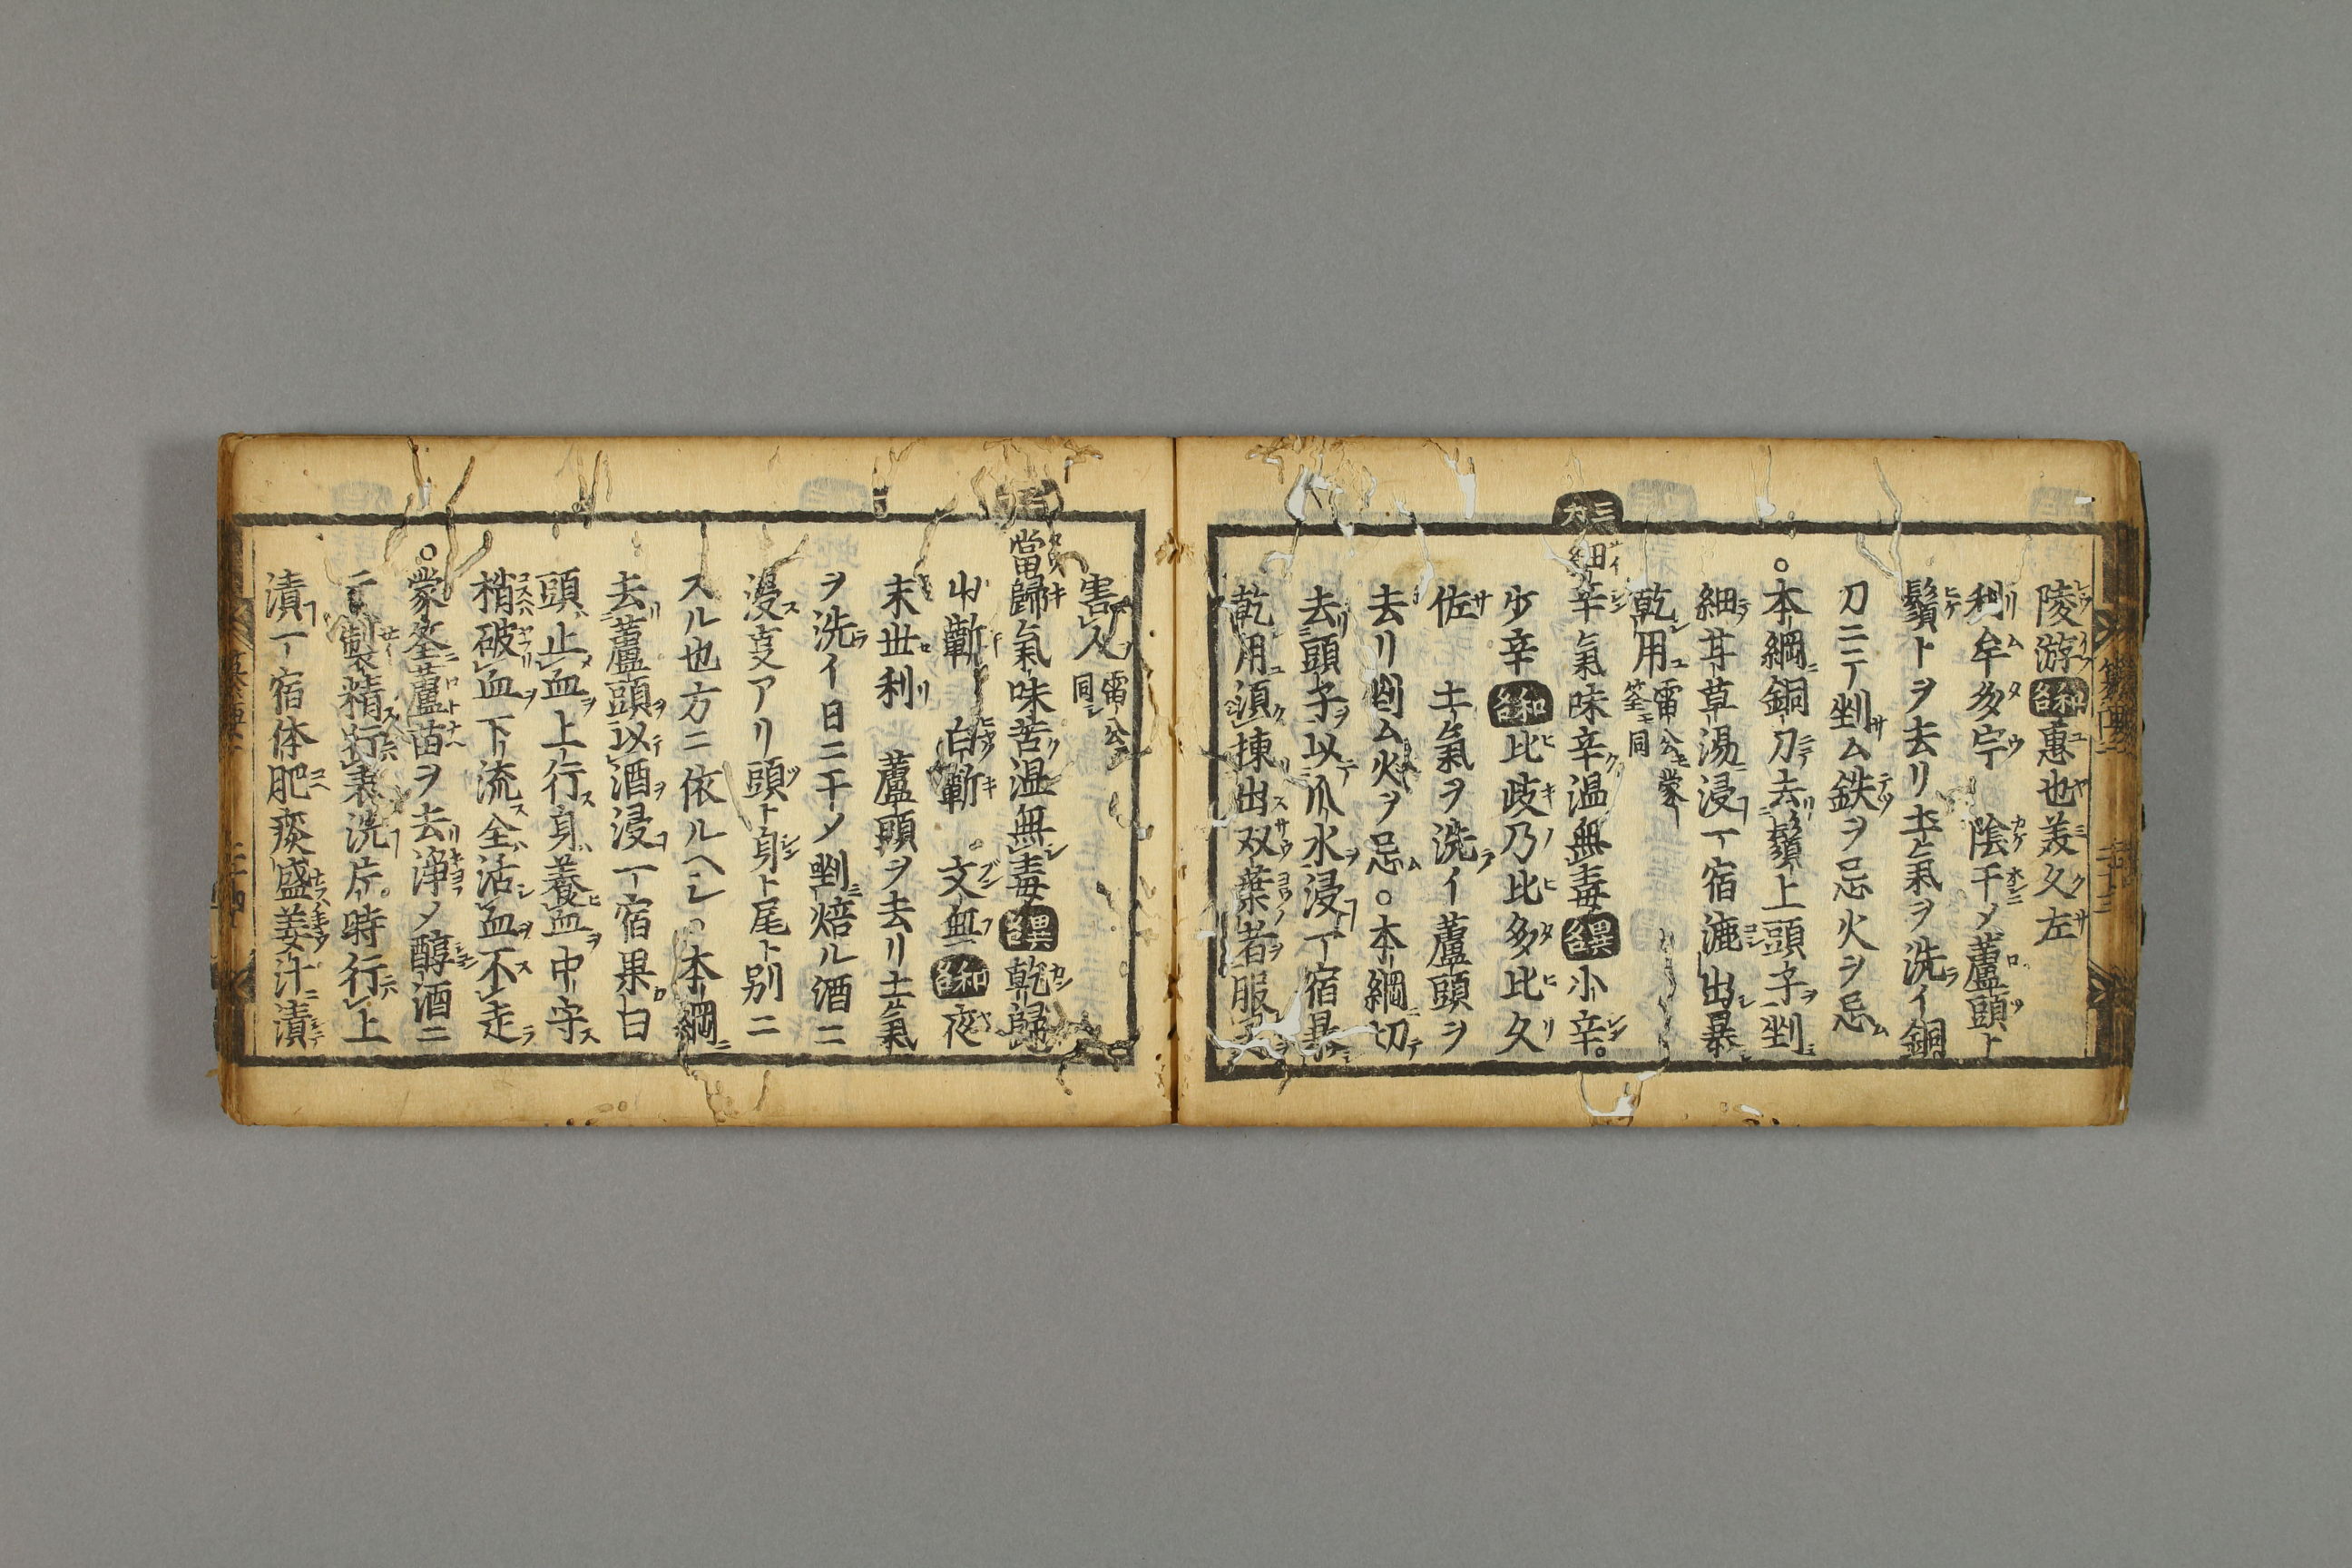 陵游和名惠也美久左
利牟多宇 陰干メ蘆頭ト
鬚トヲ去リ土氣ヲ洗イ銅
刀ニテ剉ム鉄ヲ忌火ヲ忌
○本綱銅刀去鬚上頭子剉
細甘草湯浸一宿漉出暴
乾用雷公蒙筌同
細辛氣味辛温無毒異名小辛。
少辛和名比岐乃比多比久
佐 土氣ヲ洗イ蘆頭ヲ
去リ剉ム火ヲ忌○本綱切
去頭子以爪水浸一宿暴
乾用須揀出双葉者服
害人雷公同
當歸氣味苦温無毒異名乾歸
山蘄 白蘄 。文無和名夜
末世利 蘆頭ヲ去リ土氣
ヲ洗イ日ニ干メ剉焙ル酒ニ
浸支アリ頭ト身ト尾ト別ニ
スル也方ニ依ルヘシ○本綱
去蘆頭以酒浸一宿果曰
頭止血上行身養血中守
梢破血下流全活血不走
○蒙筌蘆苗ヲ去浄メ醇酒ニ
製精行表洗片時行上
漬一宿体肥痰盛姜汁漬